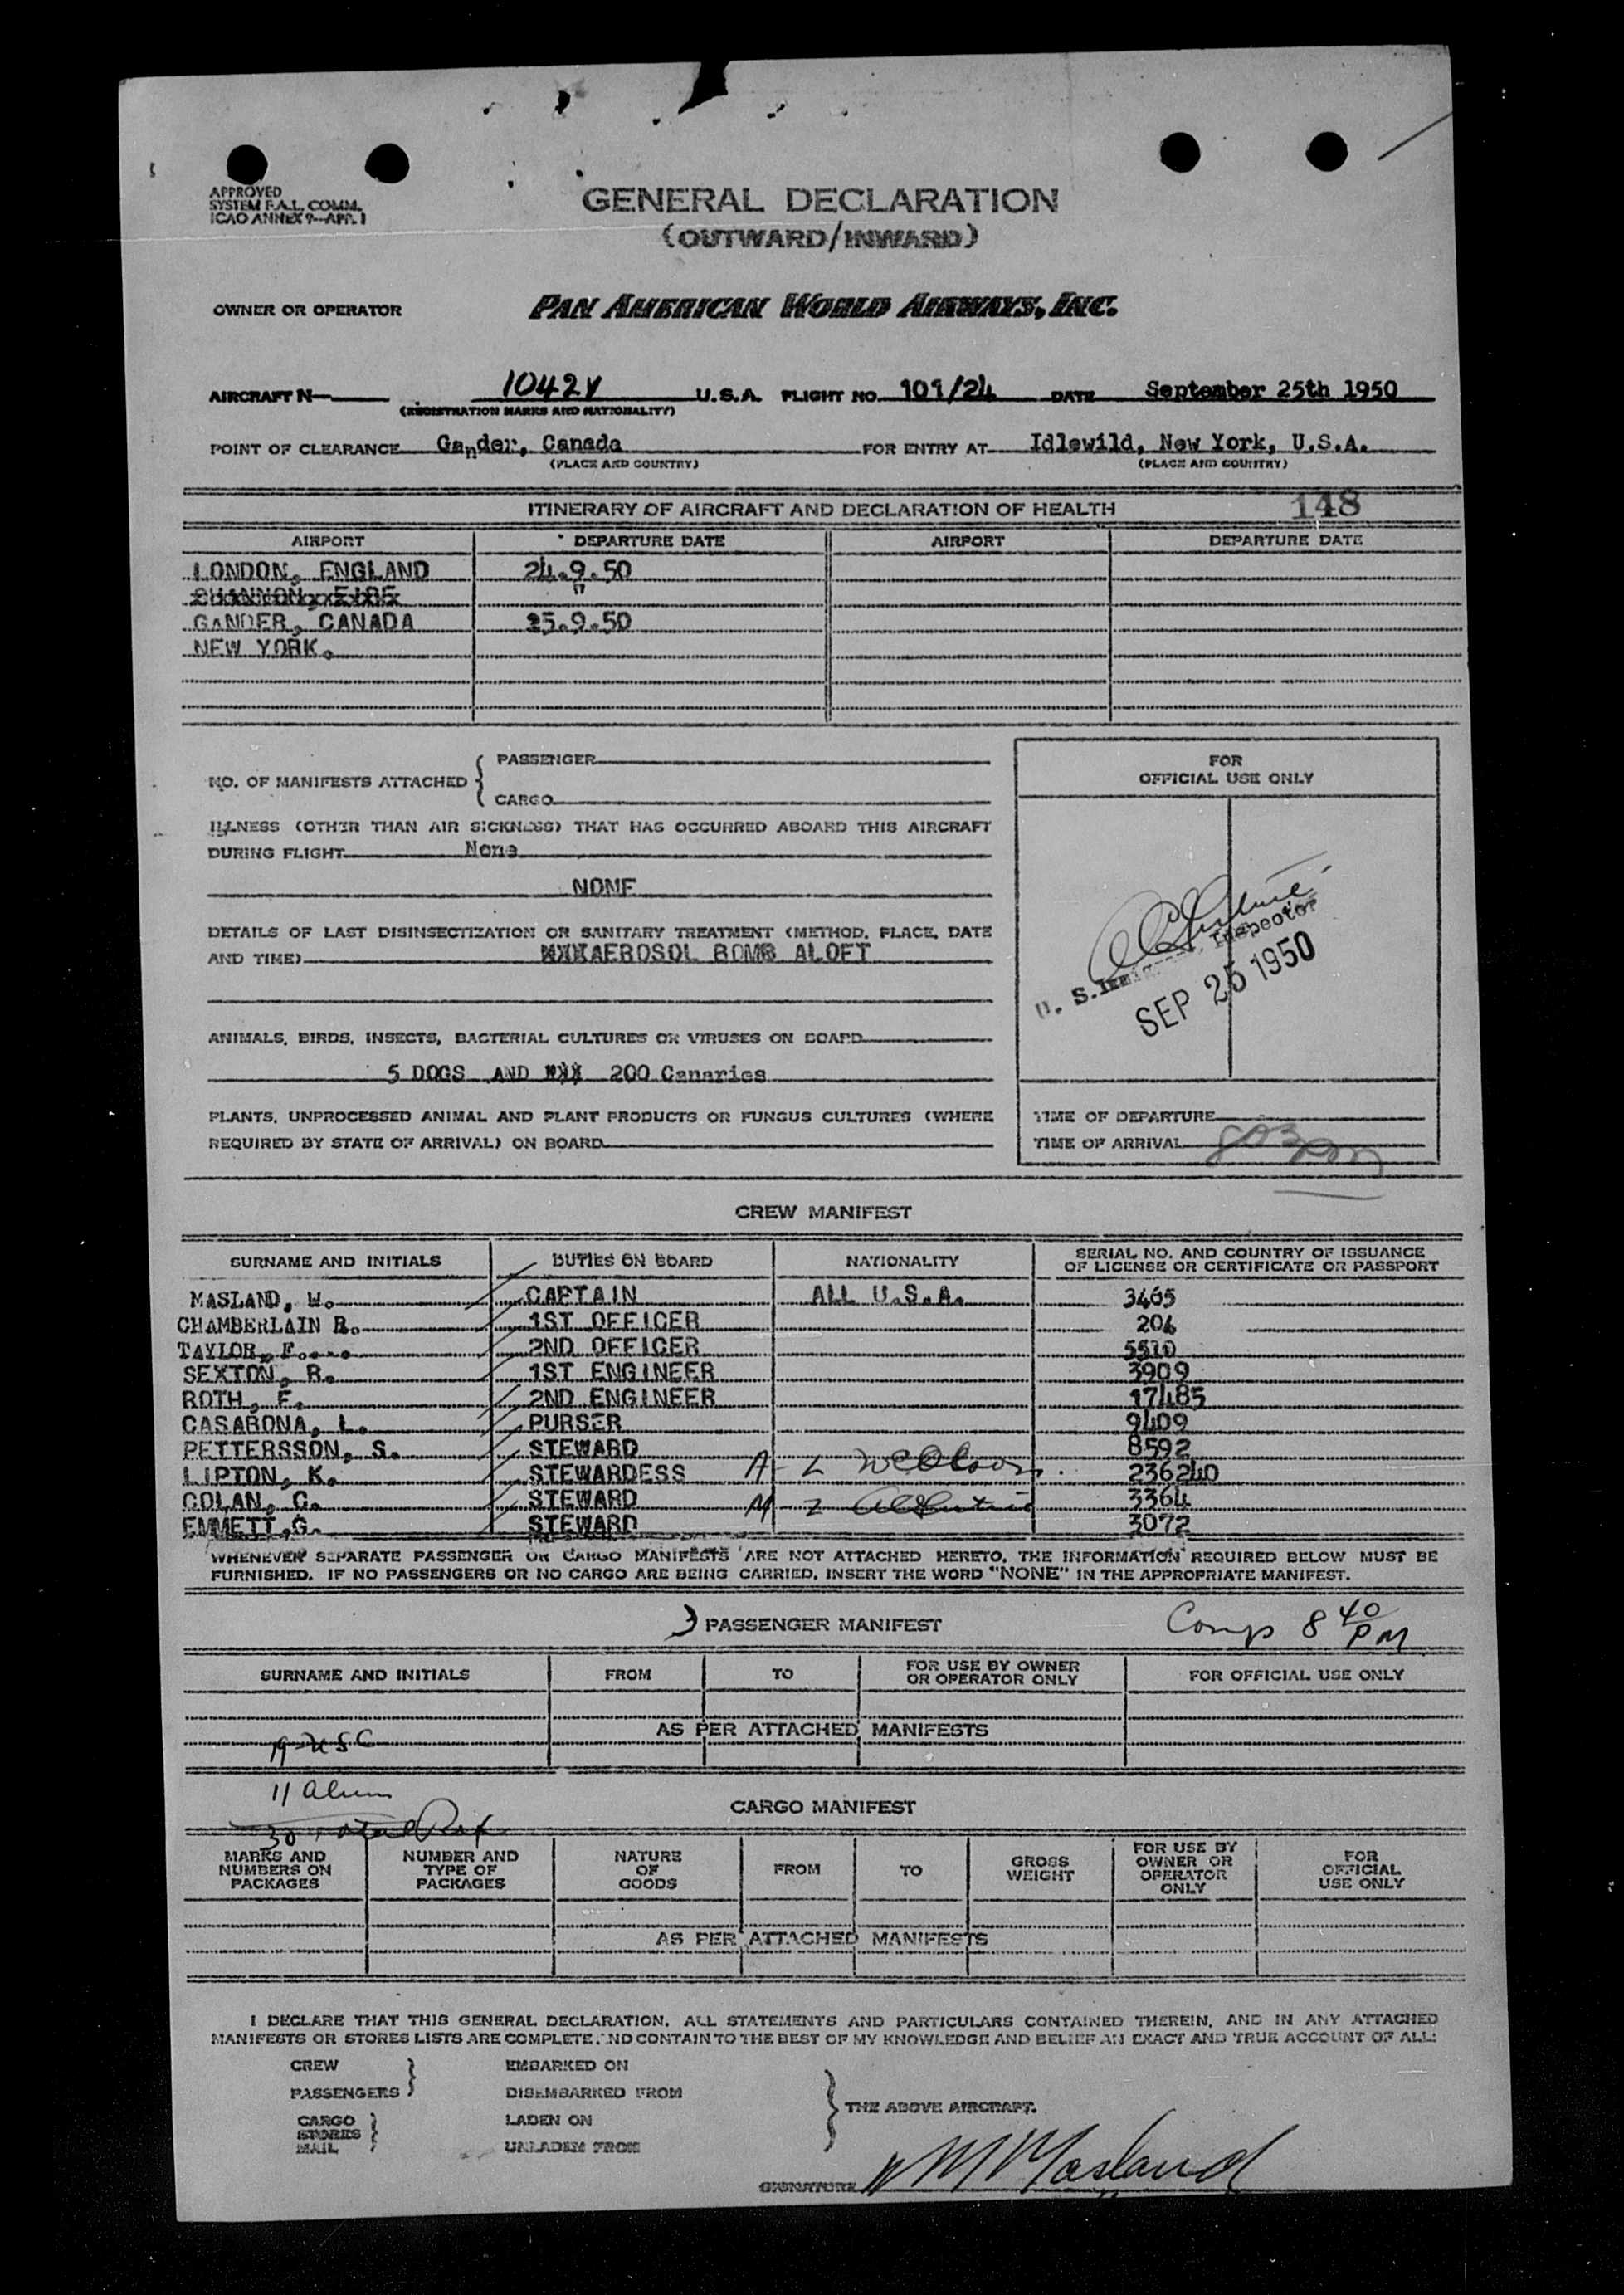 APPROVED
SYSTEM F.A.L. COMM.
ICAO ANNEX 9—APP. 1
GENERAL DECLARATION
(OUTWARD/INWARD)
OWNER OR OPERATOR PAN AMERICAN WORLD AIRWAYS, INC.
AIRCRAFT N— 1042V U.S.A. FLIGHT NO. 101/24 DATE September 25th 1950
(REGISTRATION MARKS AND NATIONALITY)
POINT OF CLEARANCE Gander, Canada FOR ENTRY AT Idlewild, New York, U.S.A.
(PLACE AND COUNTRY) (PLACE AND COUNTRY)
ITINERARY OF AIRCRAFT AND DECLARATION OF HEALTH 148
AIRPORT DEPARTURE DATE AIRPORT DEPARTURE DATE
LONDON, ENGLAND 24.9.50
SHANNON, EIRE "
GANDER, CANADA 25.9.50
NEW YORK.
NO. OF MANIFESTS ATTACHED { PASSENGER
CARGO
FOR
OFFICIAL USE ONLY
ILLNESS (OTHER THAN AIR SICKNESS) THAT HAS OCCURRED ABOARD THIS AIRCRAFT
DURING FLIGHT None
NONE
DETAILS OF LAST DISINSECTIZATION OR SANITARY TREATMENT (METHOD, PLACE, DATE
AND TIME) AEROSOL BOMB ALOFT
U. S. Inspector
SEP 25 1950
ANIMALS, BIRDS, INSECTS, BACTERIAL CULTURES OR VIRUSES ON BOARD
5 DOGS AND 200 Canaries
PLANTS, UNPROCESSED ANIMAL AND PLANT PRODUCTS OR FUNGUS CULTURES (WHERE
REQUIRED BY STATE OF ARRIVAL) ON BOARD
TIME OF DEPARTURE
TIME OF ARRIVAL 803 pm
CREW MANIFEST
SURNAME AND INITIALS DUTIES ON BOARD NATIONALITY SERIAL NO. AND COUNTRY OF ISSUANCE
OF LICENSE OR CERTIFICATE OR PASSPORT
MASLAND, W. CAPTAIN ALL U.S.A. 3465
CHAMBERLAIN R. 1ST OFFICER 204
TAYLOR, F. 2ND OFFICER 5510
SEXTON, R. 1ST ENGINEER 3909
ROTH, F. 2ND ENGINEER 17485
CASARONA, L. PURSER 9409
PETTERSSON, S. STEWARD 8592
LIPTON, K. STEWARDESS 236240
COLAN, G. STEWARD 3364
EMMETT, G. STEWARD 3072
WHENEVER SEPARATE PASSENGER OR CARGO MANIFESTS ARE NOT ATTACHED HERETO, THE INFORMATION REQUIRED BELOW MUST BE
FURNISHED. IF NO PASSENGERS OR NO CARGO ARE BEING CARRIED, INSERT THE WORD "NONE" IN THE APPROPRIATE MANIFEST.
PASSENGER MANIFEST Comp 8 40 PM
SURNAME AND INITIALS FROM TO FOR USE BY OWNER
OR OPERATOR ONLY FOR OFFICIAL USE ONLY
AS PER ATTACHED MANIFESTS
19 USC
11 alien
30 total
CARGO MANIFEST
MARKS AND
NUMBERS ON
PACKAGES NUMBER AND
TYPE OF
PACKAGES NATURE
OF
GOODS FROM TO GROSS
WEIGHT FOR USE BY
OWNER OR
OPERATOR
ONLY FOR
OFFICIAL
USE ONLY
AS PER ATTACHED MANIFESTS
I DECLARE THAT THIS GENERAL DECLARATION, ALL STATEMENTS AND PARTICULARS CONTAINED THEREIN, AND IN ANY ATTACHED
MANIFESTS OR STORES LISTS ARE COMPLETE, AND CONTAIN TO THE BEST OF MY KNOWLEDGE AND BELIEF AN EXACT AND TRUE ACCOUNT OF ALL:
CREW EMBARKED ON
PASSENGERS DISEMBARKED FROM
THE ABOVE AIRCRAFT.
CARGO LADEN ON
STORES
MAIL UNLADEN FROM
SIGNATURE W M Masland